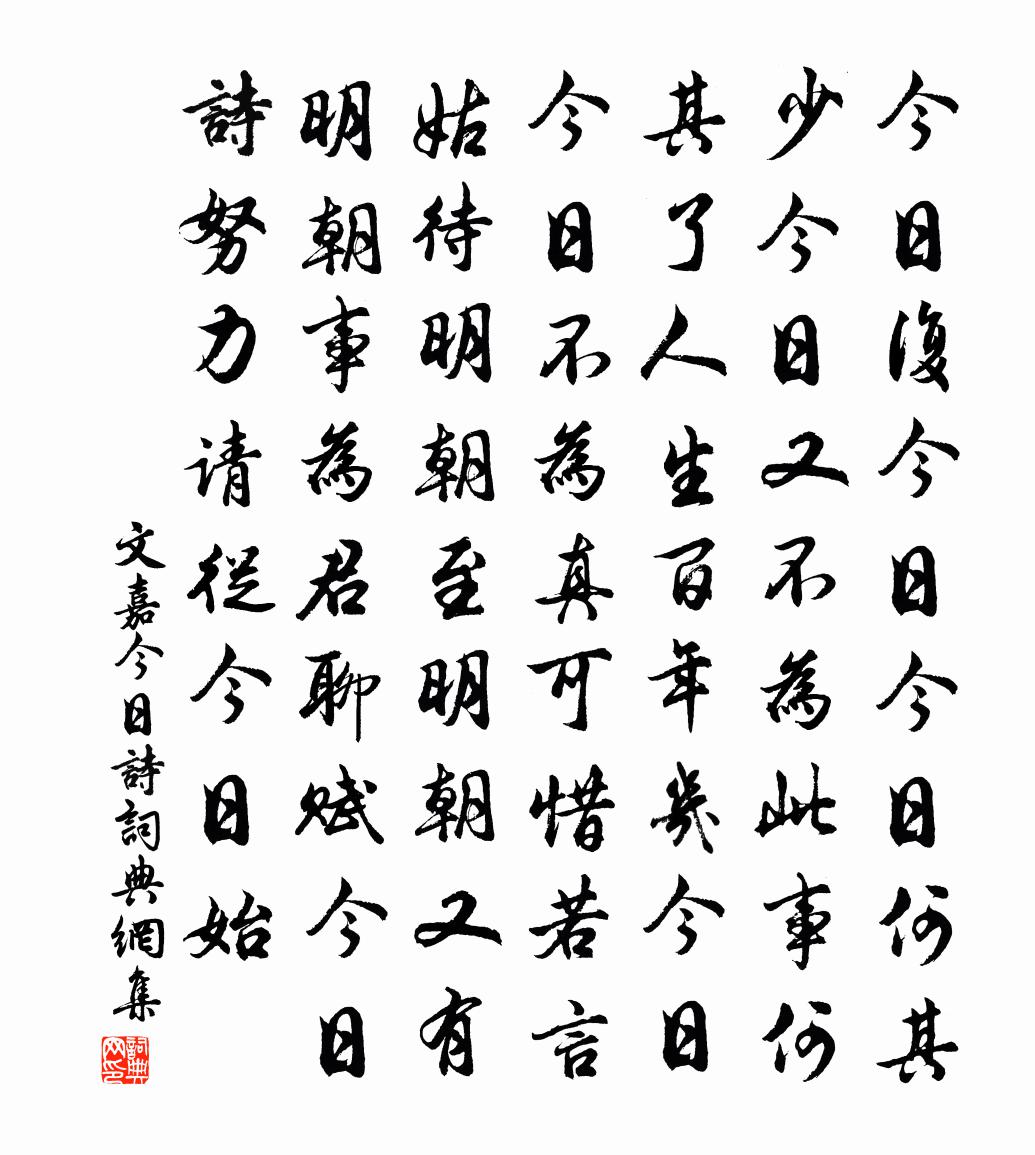 今日復今日今日何其
少今日又不為此事何
其了人生百年幾今日
今日不為真可惜若言
姑待明朝至明朝又有
明朝事為君聊賦今日
詩努力请從今日始
文嘉今日詩詞典網集
詞典网印